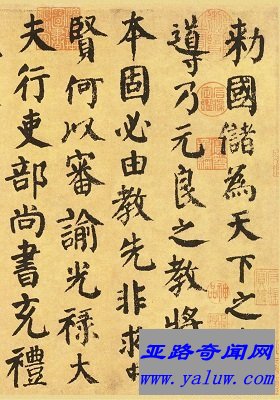 勑國儲為天下之
導乃元良之教將
本固必由教先非求
賢何以審諭光祿大
夫行吏部尚書充禮
亚路奇闻网
www.yaluw.com